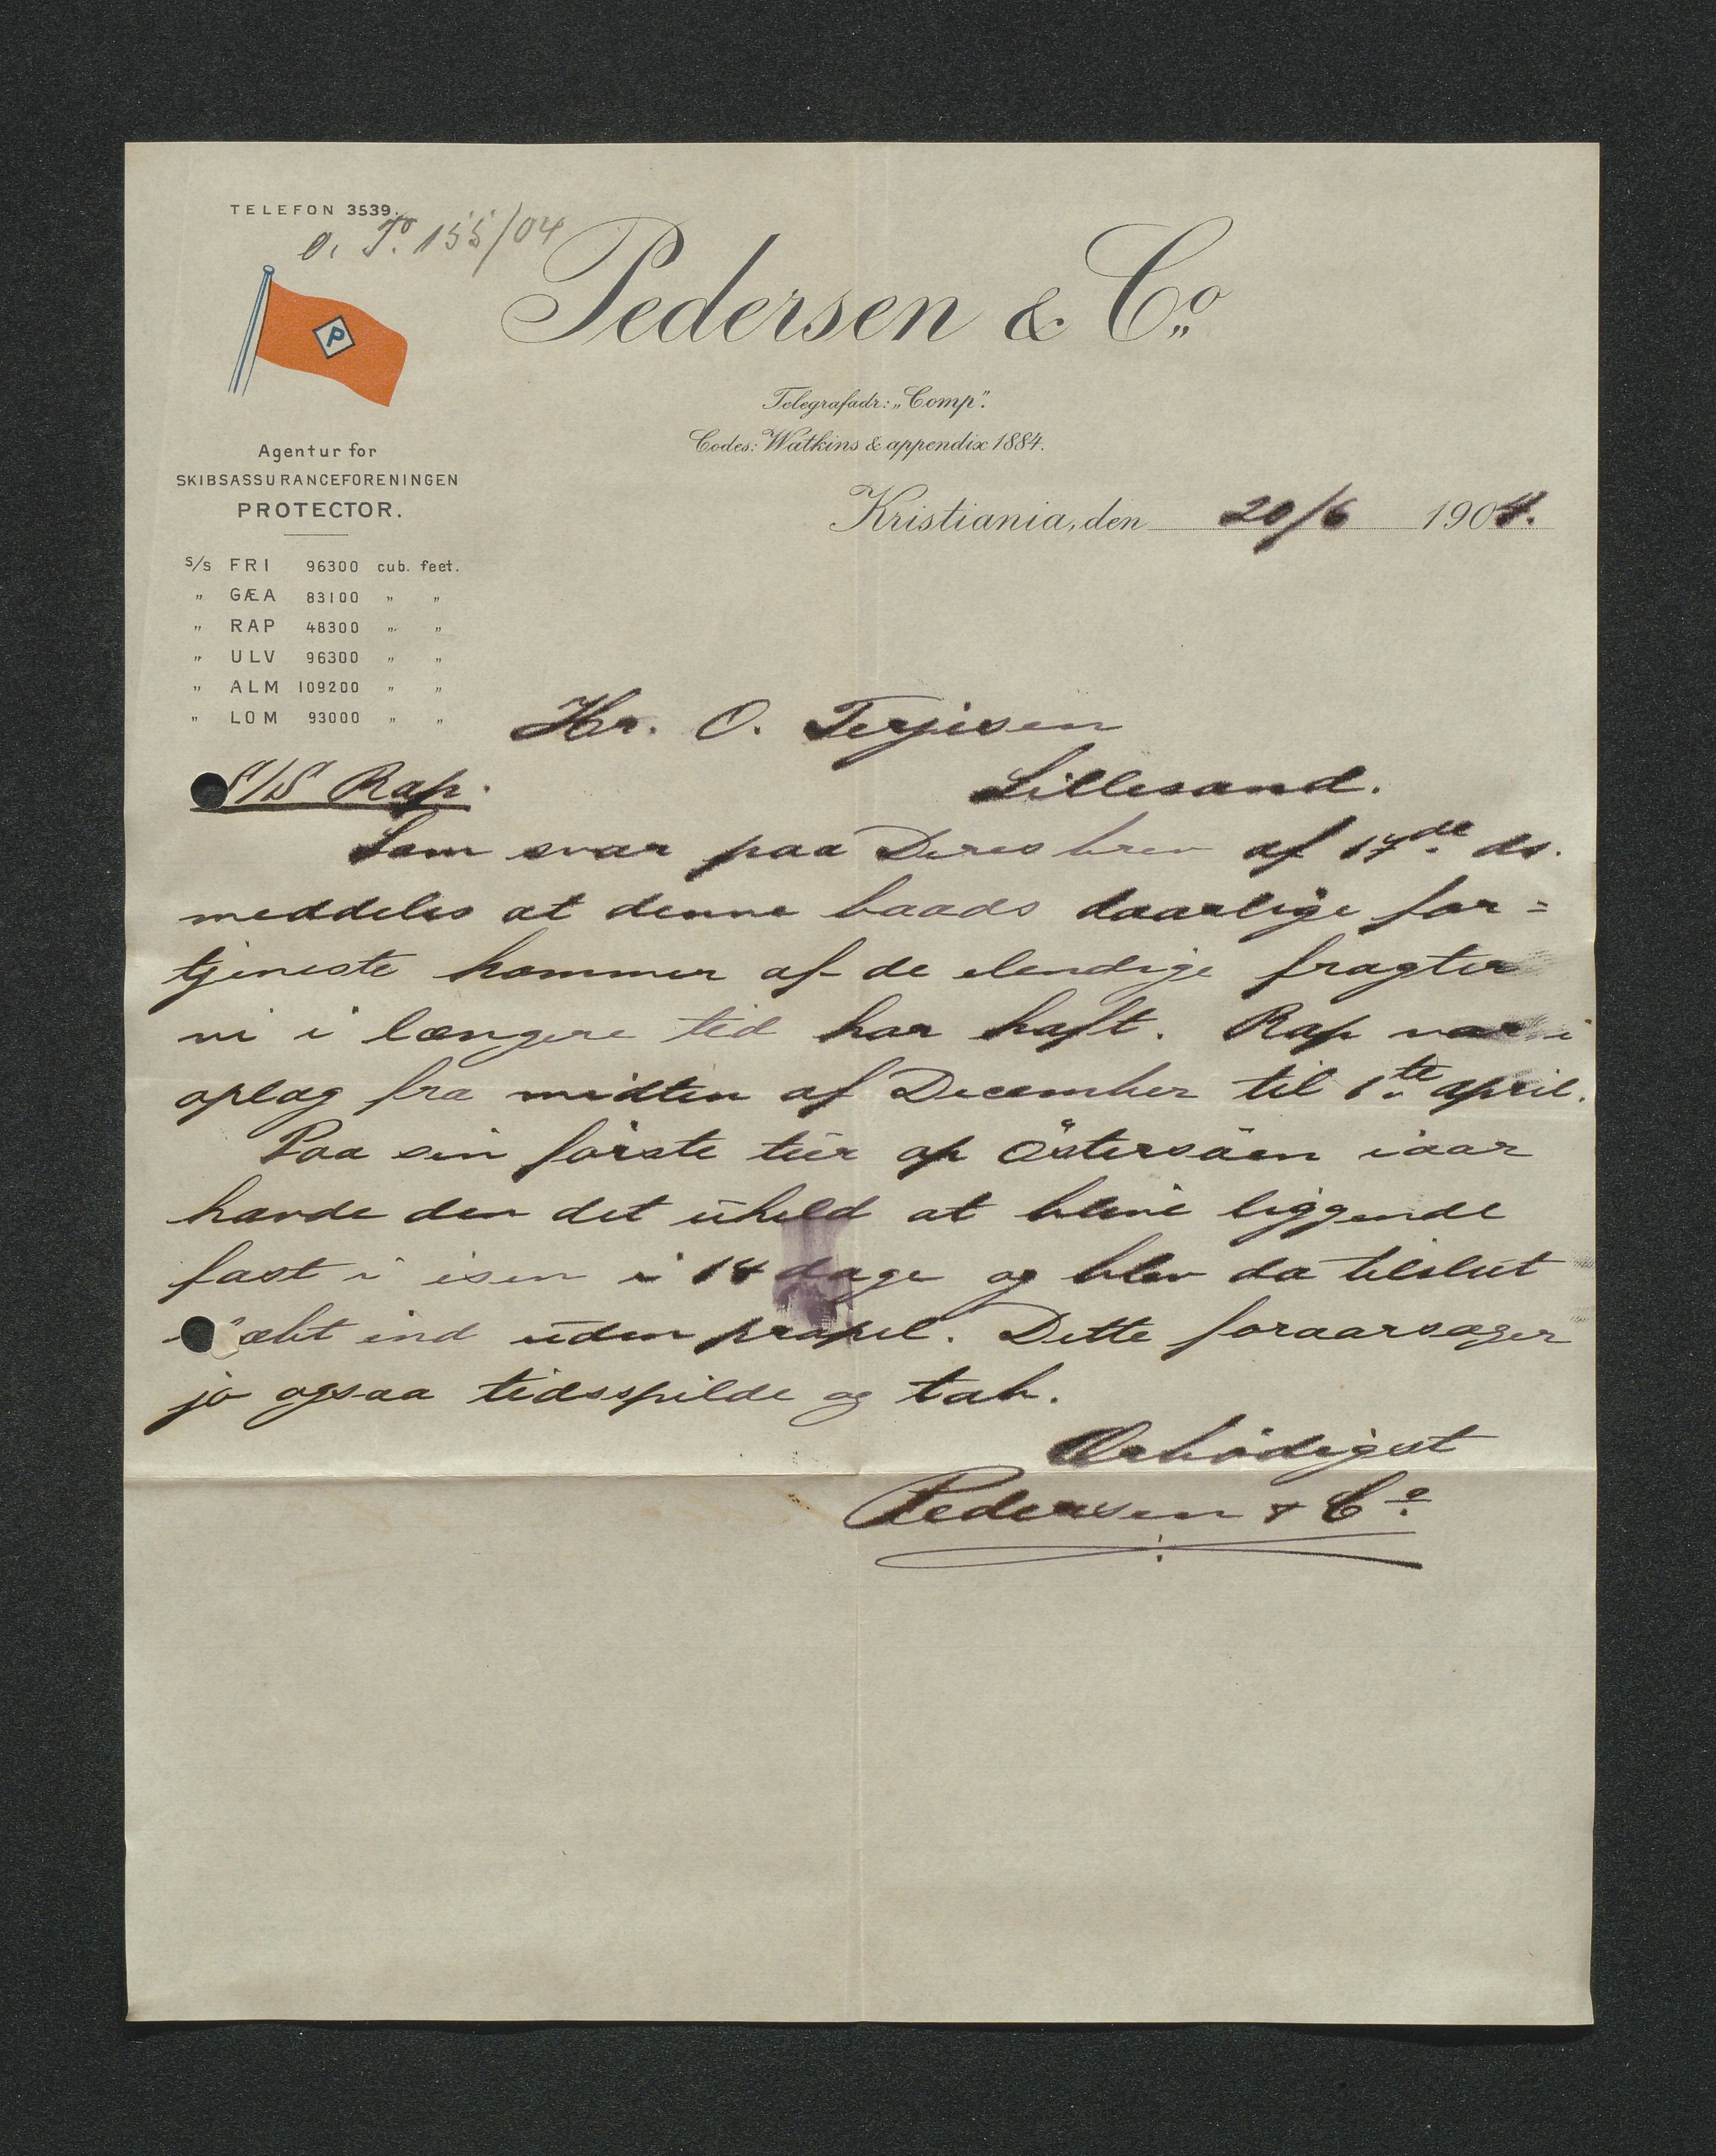 TELEFON 3539.
O. T. 155/04
Pedersen & Co.
P
Telegrafadr: „Comp".
Codes: Watkins & appendix 1884.
Agentur for
SKIBSASSURANCEFORENINGEN
PROTECTOR.
Kristiania, den 20/6 1904.
S/S FRI 96300 cub. feet.
„ GÆA 83100 „ „
„ RAP 48300 „ „
„ ULV 96300 „ „
„ ALM 109200 „ „
„ LOM 93000 „ „
Hr. O. Terjesen
Lillesand.
S/S Rap.
Som svar paa Deres brev af 17de ds.
meddeles at denne baads daarlige for=
tjeneste kommer af de elendige fragter
vi i længere tid har haft. Rap var i
oplag fra midten af December til 1ste april.
Paa sin første tur op Östersöen iaar
havde den det uheld at blive liggende
fast i isen i 14 dage og blev da tilslut
ind uden propel. Dette foraarsager
jo ogsaa tidsspilde og tab.
Ærbödigst
Pedersen & Co.